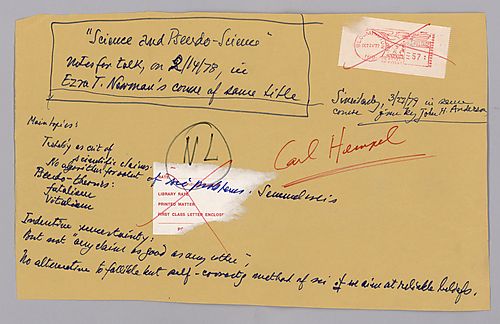 "Science and Pseudo-Science"
notes for talk, on 2/14/78, in
Ezra T. Newman's course of same title
Similarly, 3/22/79 in same
course given by John H. Anderson
Main topics:
Testability as crit of
scientific claims.
No algorithm for solut of sci problems: Semmelweis
Pseudo-theories:
Fatalism
Vitalism
NL
Carl Hempel
LIBRARY RATE
PRINTED MATTER
FIRST CLASS LETTER ENCLOS
Inductive uncertainty:
But not "any claim as good as any other"
No alternative to fallible but self-correctg method of sci if we aim at reliable beliefs.